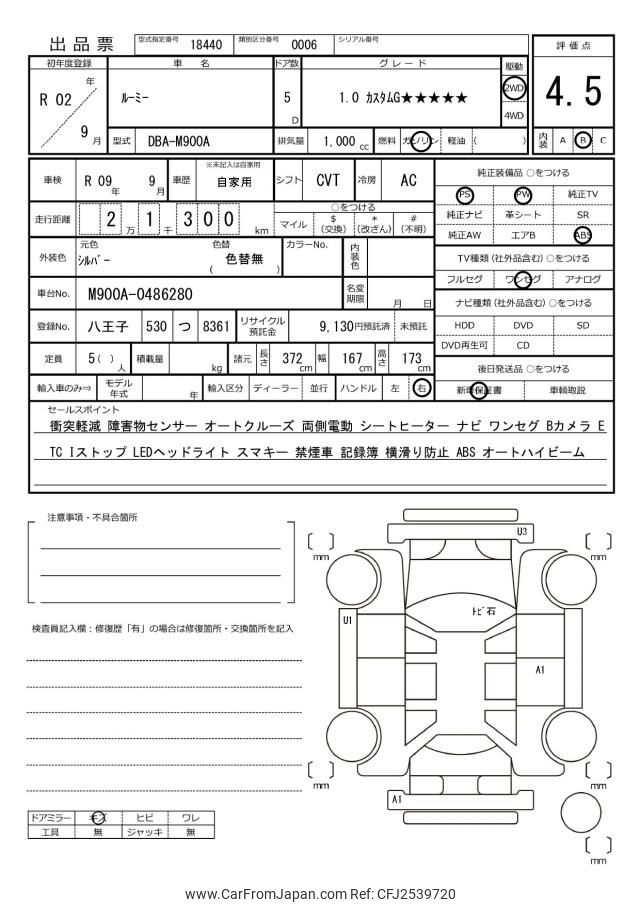 出品票
型式指定番号 18440 類別区分番号 0006 シリアル番号
評価点
4.5
内装 A B C
初年度登録 車名 ドア数 グレード 駆動
R 02 年 9 月
ルーミー 5 D 1.0 カスタムG★★★★★ 2WD 4WD
型式 DBA-M900A 排気量 1,000 cc 燃料 ガソリン 軽油 ( )
車検 R 09 年 9 月 車歴 ※未記入は自家用 自家用 シフト CVT 冷房 AC
走行距離 2 万 1 千 3 0 0 km
○をつける
マイル $ (交換) * (改ざん) # (不明)
外装色 元色 シルバー 色替 ( 色替無 ) カラーNo. 内装色
車台No. M900A-0486280 名変期限 月 日
登録No. 八王子 530 つ 8361 リサイクル預託金 9,130円預託済 未預託
定員 5 ( ) 人 積載量 kg 諸元 長さ 372 cm 幅 167 cm 高さ 173 cm
輸入車のみ⇒ モデル年式 年 輸入区分 ディーラー 並行 ハンドル 左 右
純正装備品 ○をつける
PS PW 純正TV
純正ナビ 革シート SR
純正AW エアB ABS
TV種類 (社外品含む) ○をつける
フルセグ ワンセグ アナログ
ナビ種類 (社外品含む) ○をつける
HDD DVD SD
DVD再生可 CD
後日発送品 ○をつける
新車保証書 車輌取説
セールスポイント
衝突軽減 障害物センサー オートクルーズ 両側電動 シートヒーター ナビ ワンセグ Bカメラ E
TC Iストップ LEDヘッドライト スマキー 禁煙車 記録簿 横滑り防止 ABS オートハイビーム
注意事項・不具合箇所
検査員記入欄：修復歴「有」の場合は修復箇所・交換箇所を記入
ドアミラー キズ ヒビ ワレ
工具 無 ジャッキ 無
U3
mm
mm
トビ石
U1
A1
mm
mm
A1
mm
www.CarFromJapan.com Ref: CFJ2539720